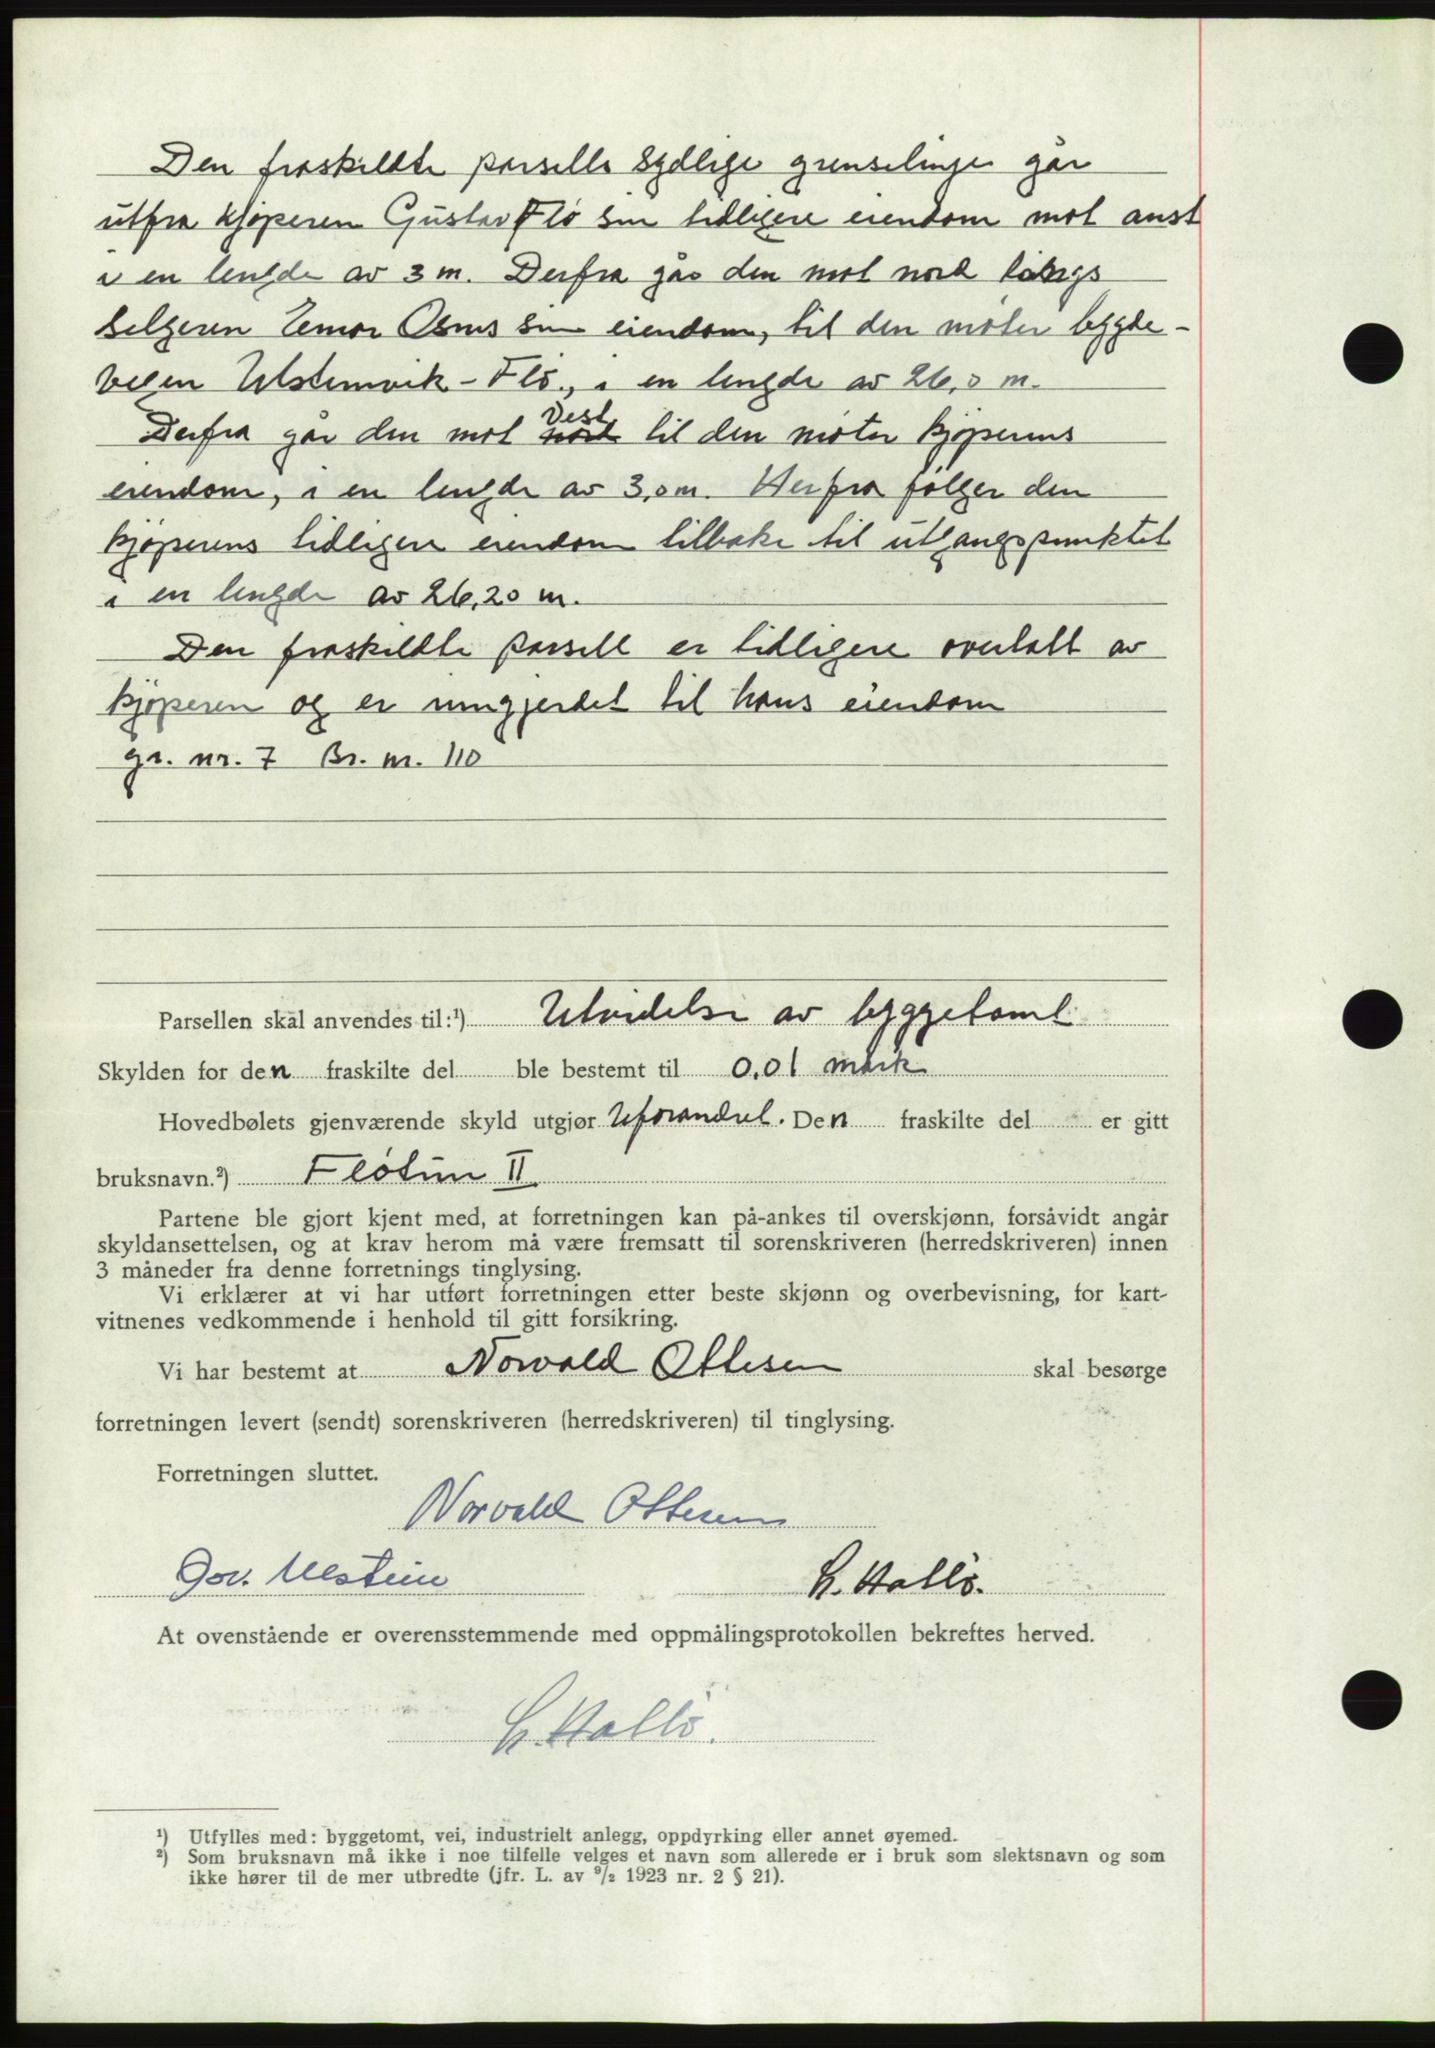 Den fraskildte parsells sydlige grenselinje går
utfra kjøperen Gustav Flø sin tidligere eiendom mot aust
i en lengde av 3 m. Derfra går den mot nord langs
selgeren Osnes sin eiendom, til den møter bygde-
vegen Ulsteinvik - Flø., i en lengde av 26,0 m.
Derfra går den mot vest til den møter kjøperens
eiendom, i en lengde av 3,0 m. Herfra følger den
kjøperens tidligere eiendom tilbake til utgangspunktet
i en lengde av 26,20 m.
Den fraskildte parsell er tidligere overtatt av
kjøperen og er inngjerdet til hans eiendom
gr. nr. 7 Br. nr. 110
Parsellen skal anvendes til:¹) Utvidelse av byggetomt
Skylden for den fraskilte del ble bestemt til 0,01 mark
Hovedbølets gjenværende skyld utgjør Uforandret. Den fraskilte del er gitt
bruksnavn.²) Fløtun II
Partene ble gjort kjent med, at forretningen kan på-ankes til overskjønn, forsåvidt angår
skyldansettelsen, og at krav herom må være fremsatt til sorenskriveren (herredskriveren) innen
3 måneder fra denne forretnings tinglysing.
Vi erklærer at vi har utført forretningen etter beste skjønn og overbevisning, for kart-
vitnenes vedkommende i henhold til gitt forsikring.
Vi har bestemt at Norvald Ottesen skal besørge
forretningen levert (sendt) sorenskriveren (herredskriveren) til tinglysing.
Forretningen sluttet.
Norvald Ottesen
Gov. Ulstein H. Hallø.
At ovenstående er overensstemmende med oppmålingsprotokollen bekreftes herved.
H. Hallø.
¹) Utfylles med: byggetomt, vei, industrielt anlegg, oppdyrking eller annet øyemed.
²) Som bruksnavn må ikke i noe tilfelle velges et navn som allerede er i bruk som slektsnavn og som
ikke hører til de mer utbredte (jfr. L. av ⁹/₂ 1923 nr. 2 § 21).